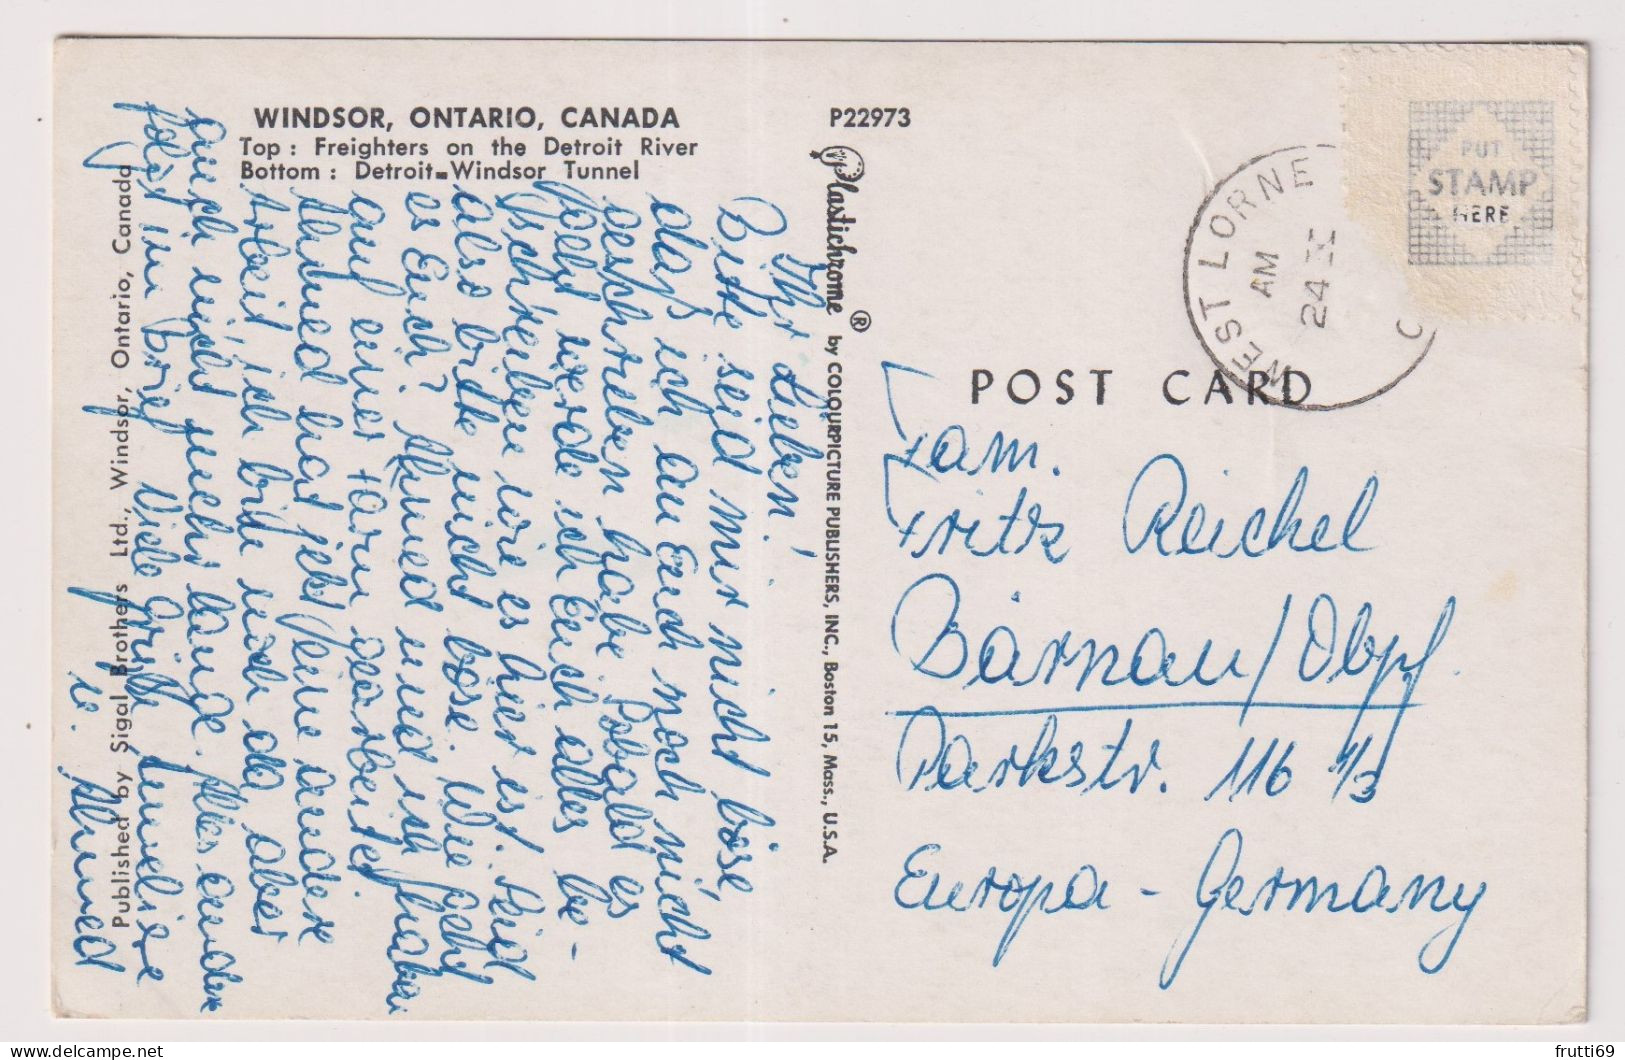 WINDSOR, ONTARIO, CANADA
Top: Freighters on the Detroit River
Bottom: Detroit-Windsor Tunnel
P22973
Plastichrome ® by COLOURPICTURE PUBLISHERS, INC., Boston 15, Mass., U.S.A.
Published by Sigal Brothers Ltd., Windsor, Ontario, Canada
PUT
STAMP
HERE
WEST LORNE
AM
24 IX
POST CARD
Fam.
Fritz Reichel
Bärnau/Obpf
Parkstr. 116 1/3
Europa - Germany
Ihr Lieben!
Bitte seid mir nicht böse,
daß ich an Euch noch nicht
geschrieben habe. Sobald es
geht werde ich Euch alles be-
schreiben wie es hier ist. Seid
also bitte nicht böse. Wie geht
es Euch? Ahmed und ich haben
auf einer Farm gearbeitet
Ahmed hat jetzt seine andere
Arbeit ich bin noch da aber
auch nicht mehr lange. Alles andere
folgt im Brief. Viele Grüße
u. Ahmed